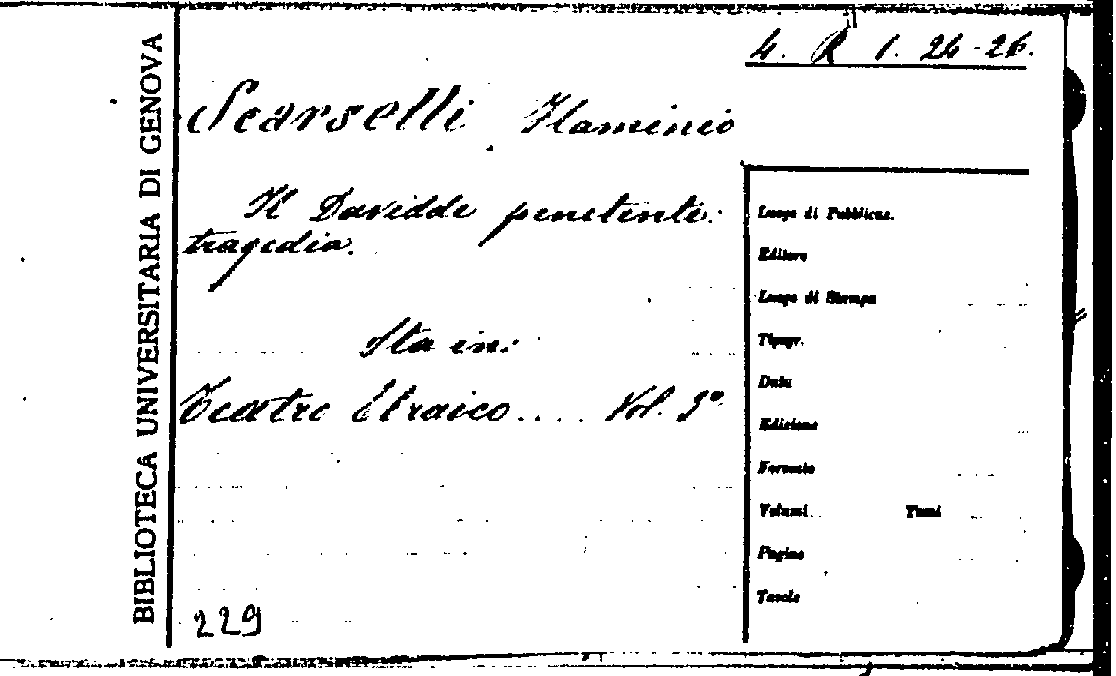 4. R 1. 24-26.
BIBLIOTECA UNIVERSITARIA DI GENOVA
Scarselli Flaminio
Il Davidde penitente:
tragedia.
Sta in:
Teatro Ebraico.... Vol. 3º
Luogo di Pubblicaz.
Editore
Luogo di Stampa
Tipogr.
Data
Edizione
Formato
Volumi Tomi
Pagine
Tavole
229